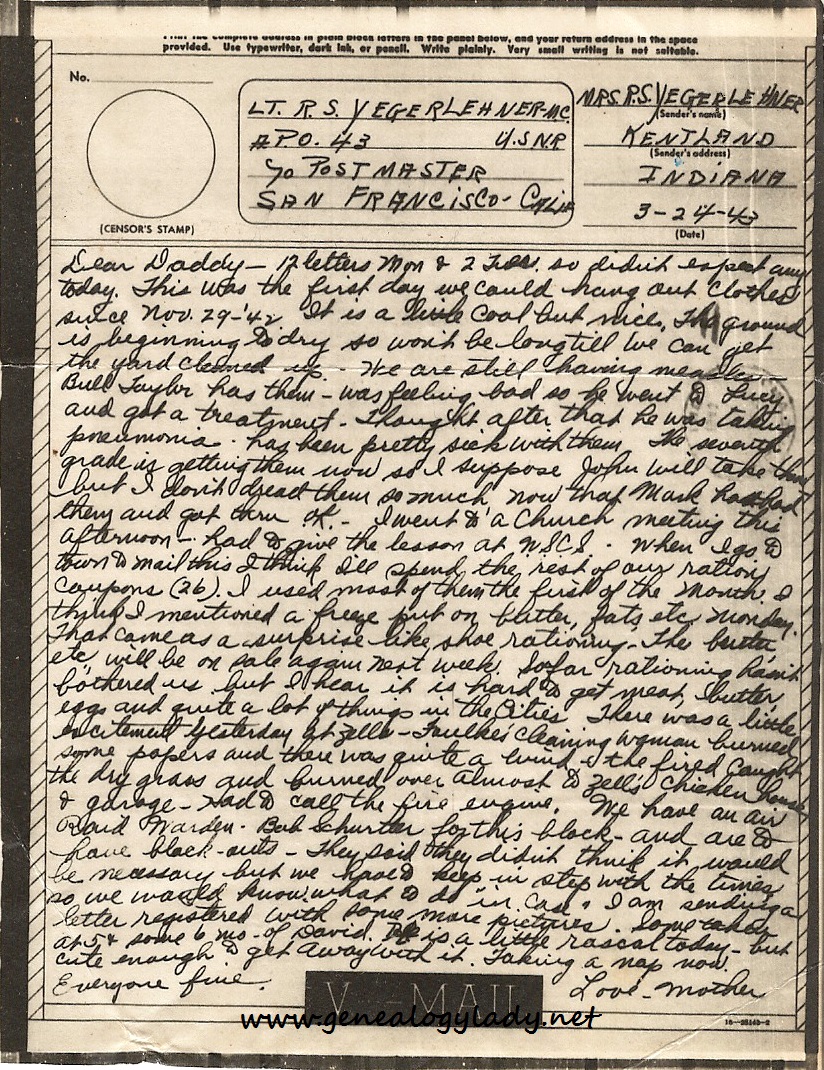 Print the complete address in plain block letters in the panel below, and your return address in the space
provided. Use typewriter, dark ink, or pencil. Write plainly. Very small writing is not suitable.
No.
(CENSOR'S STAMP)
LT. R. S. YEGERLEHNER-MC.
APO. 43 U.S.N.R
c/o POSTMASTER
SAN FRANCISCO - CALIF
MRS. R.S. YEGERLEHNER
(Sender's name)
KENTLAND
(Sender's address)
INDIANA
3-24-43
(Date)
Dear Daddy - 12 letters Mon & 2 Tues. so didn't expect any
today. This was the first day we could hang out clothes
since Nov. 29-'42 It is a little cool but nice. The ground
is beginning to dry so won't be long till we can get
the yard cleaned up. - We are still having measles
Bill Taylor has them - was feeling bad so he went to Lucy
and got a treatment - Thought after that he was taking
pneumonia - has been pretty sick with them. The seventh
grade is getting them now so I suppose John will take them
but I don't dread them so much now that Mark has had
them and got thru ok. - I went to a Church meeting this
afternoon - had to give the lesson at WSCS - When I go to
town to mail this I think I'll spend the rest of our ration
coupons (26). I used most of them the first of the month. I
think I mentioned a freeze put on butter, fats, etc Monday.
That came as a surprise like shoe rationing - The butter
etc, will be on sale again next week. So far rationing hasn't
bothered us but I hear it is hard to get meat, butter,
eggs and quite a lot of things in the Cities There was a little
excitement yesterday at Zella - Faulke's cleaning woman burned
some papers and there was quite a wind & the fired caught
the dry grass and burned over almost to Zell's chicken house
& garage - Had to call the fire engine. We have an air
Raid Warden - Bob Schurtter for this block - and are to
have black-outs - They said they didn't think it would
be necessary but we have to keep in step with the times
so we would know what to do "in case" I am sending a
letter registered with some more pictures. Some taken
at 5 & some 6 mo. of David. He is a little rascal today - but
cute enough to get away with it. Taking a nap now.
Everyone fine. Love - Mother
V - MAIL
www.genealogylady.net
16-28143-2